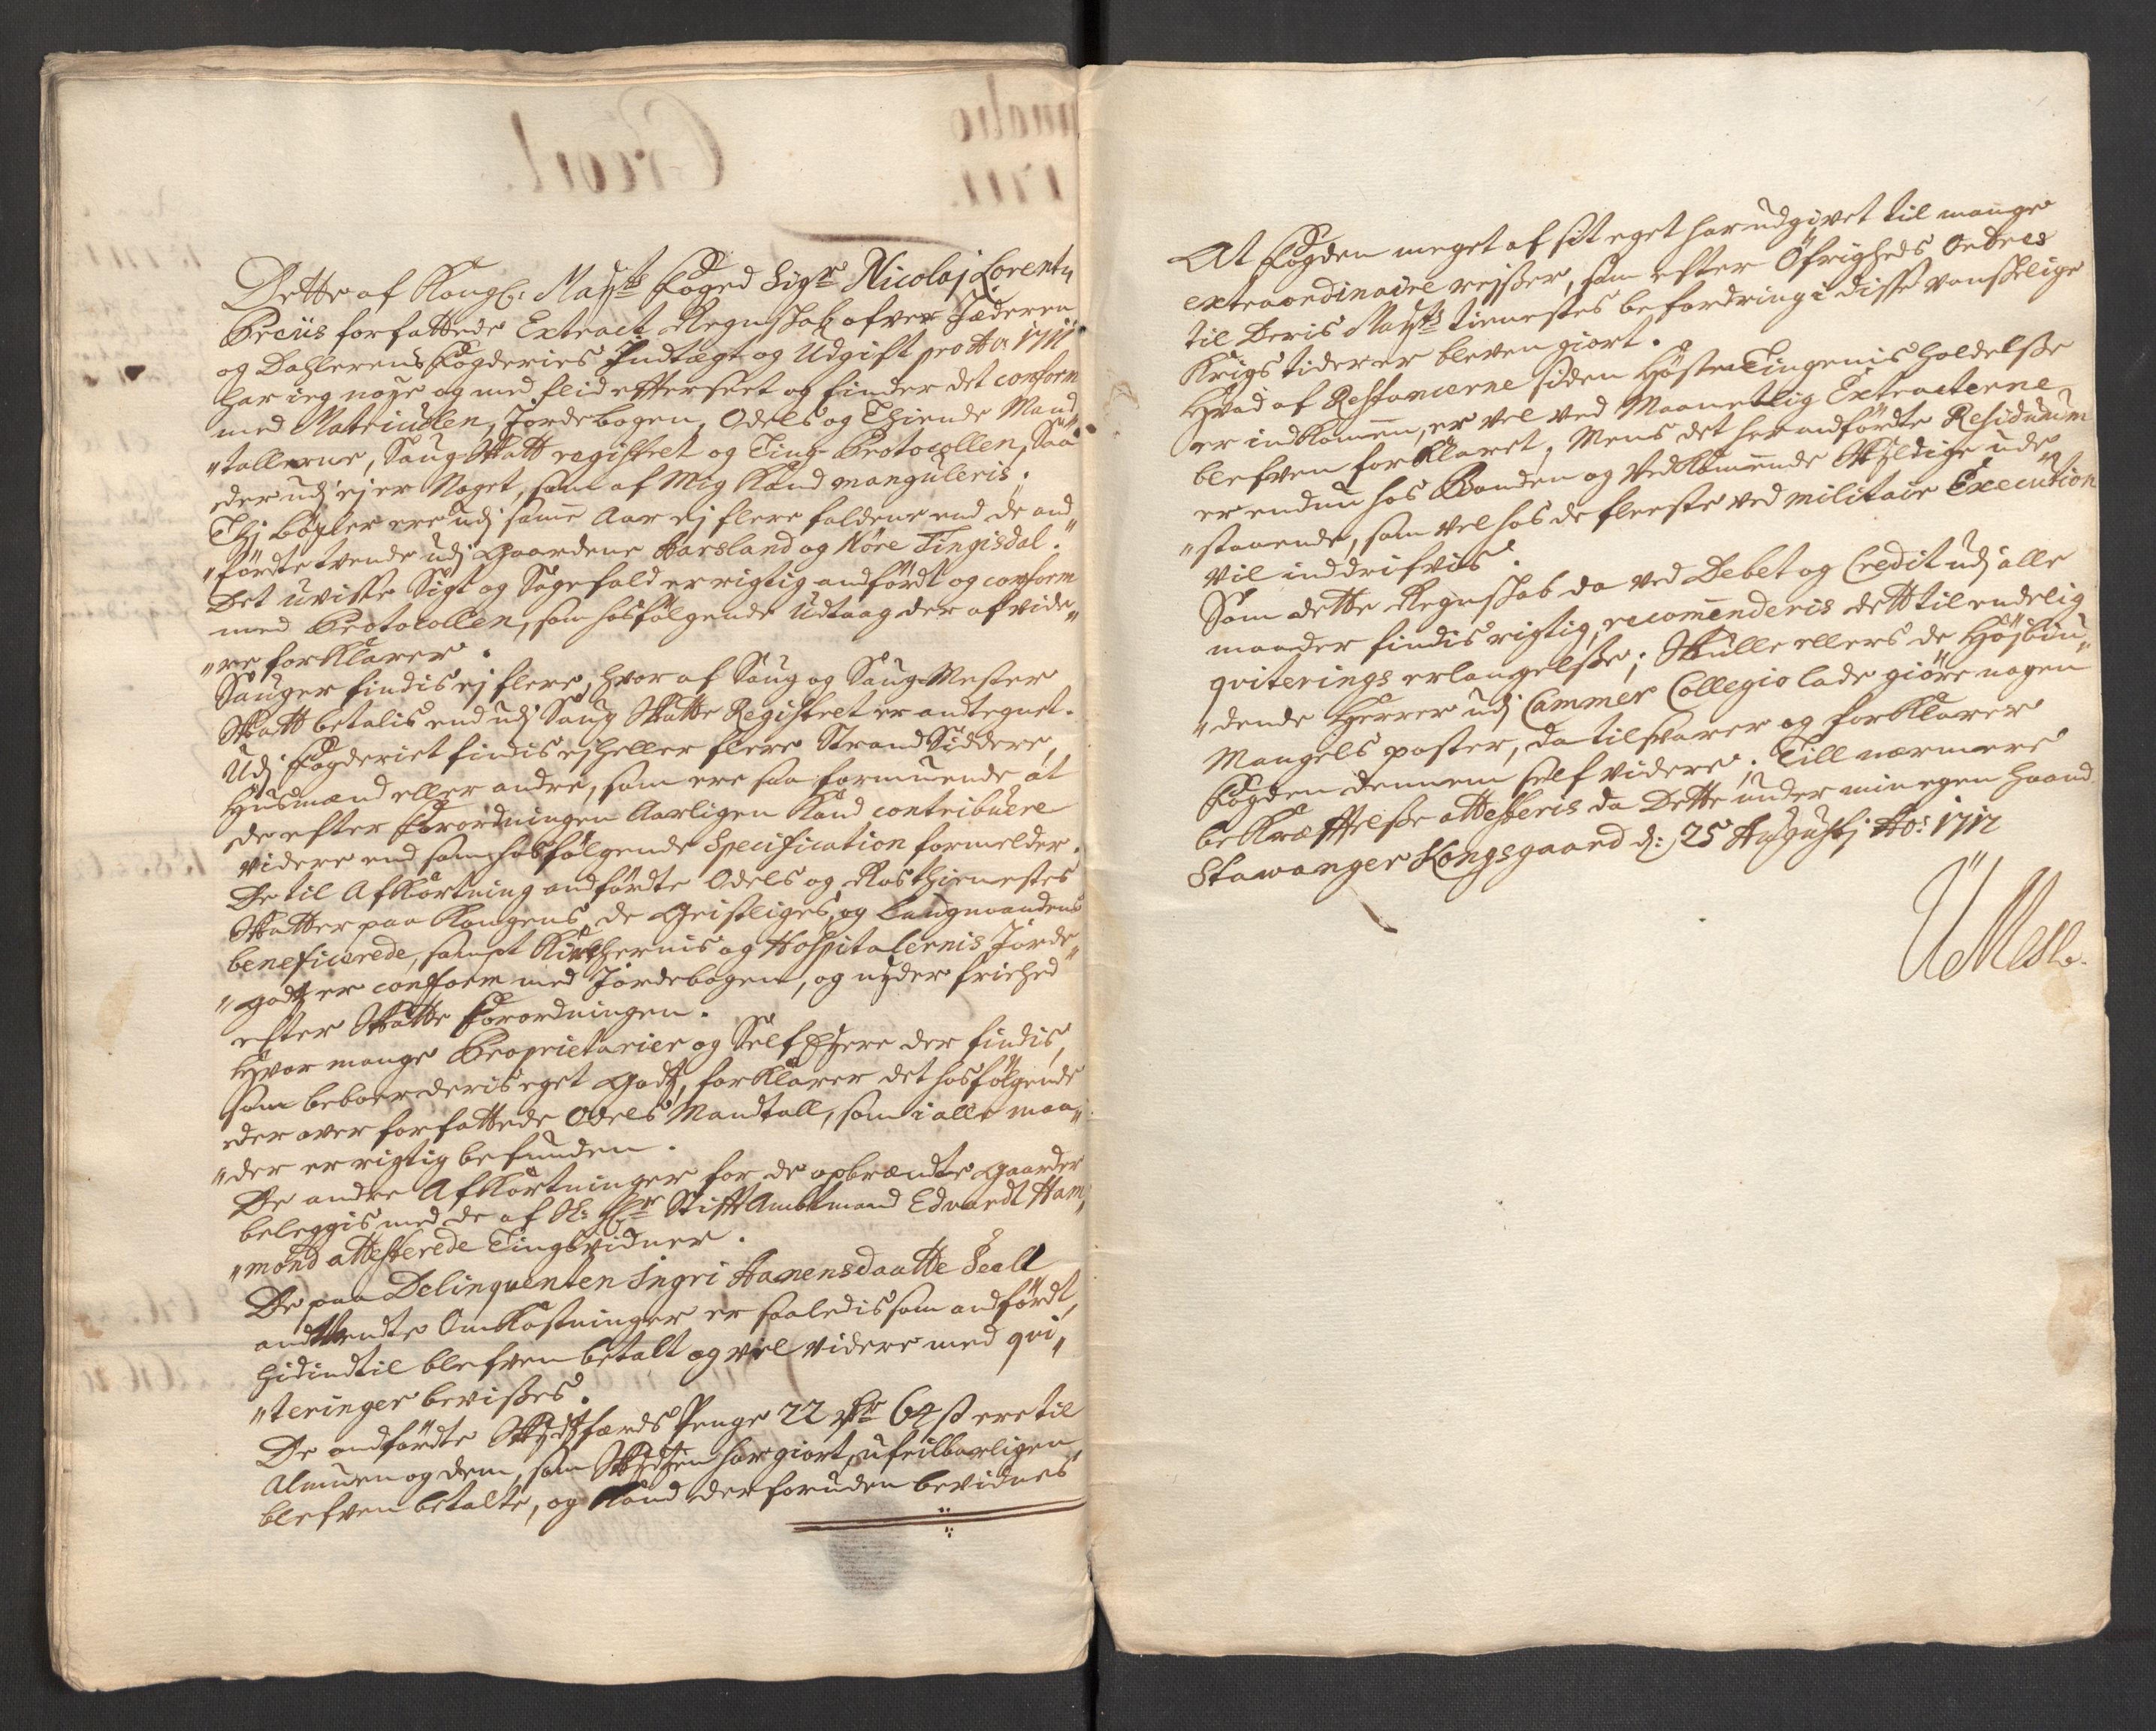 Dette af Kongl: Maÿtz Foged Sigr Nicolaj Lorentz
Preüs forfattede Extract Regnskab ofver Jæderen
og Dahlerens Fogderies Indtægt og Udgift pro Ao 1711
har ieg nøye og med flid efterseet og finder det conform
med Matriculen, Jordebogen, Odels og Thiende Mand
"tallerne, Saug Skatt registret og Ting-Protocollen, Saa
der udj ej er Noget, som af Mig Kand manguleris.
Thj bøxler ere udj samme Aar ej flere faldene end de and
"førdte tvende udj Gaardene Harsland og Nøre Tingisdal.
Det uvisse Sigt og Sagefald er rigtig andførdt og conform
med Protocollen, som hosfølgende Udtaag der af vide"
"re forklarer.
Sauger findis ej flere, hvor af Saug og Saug-Mester
Skatt betalis end udj Saug Skatte Registret er andtegnet.
Udj Fogderiet findis ej heller flere Strand Siddere,
Huusmænd eller andre, som ere saa formuende at
de efter Forordningen Aarligen Kand contribuere
videre end som hosfølgende Specification formelder.
De til Afkortning andførdte Odels og Rosthienestes
Skatter paa Kongens, de Geistliges, og Laugmandens
beneficerede, sampt Kirchernis og Hospitalernis Jorde"
"godtz er conform med Jordebogen, og nyder friehed
efter Skatte Forordningen.
Hvor mange Proprietarier og Self Eyere der findis,
som beboer deris eget Godtz, forklarer det hosfølgende
der over forfattede Odels Mandtall, som i alle maa"
"der er rigtig befunden.
De andre Afkortninger for de opbrændte Gaarder
beleggis med de af Sl: Hr Stift Ambtmand Edvardt Ham"
"mond attesterede Tingsvidner.
De paa Delinquenten Ingri Hanensdaatte
andvendte Omkostninger er saaledis som andførdt,
hidindtil blefven betalt og vil videre med qvi"
"teringer bevises.
De andførdte Skydsfærds Penge 22 Rdr 64 s ere til
Almuen og dem, som Skydsen har giort, ufeilbarligen
blefven betalte, og Kand der foruden bevidnes
At Fogden meget af sit eget har udgivet til mange
extraordinaire reiser, som efter Øfrigheds Ordres
til Deris Maÿtz tienestes befordring i disse vanskelige
Krigs tider er bleven giort.
Hvad af Restancerne siden Høste Tingenis holdelse
er indkommen, er vel ved Maanetlig Extracterne
blefven forklaret, Mens det her andførdte Residuum
er endnu hos Bonden og vedkommende Skyldige ude
"staaende, som vel hos de fleeste ved militair Execution
vil inddrifvis.
Som dette Regnskab da ved Debet og Credit udj alle
maader findis rigtig, recommenderis dett til endelig
qviterings erlangelse; Skulle ellers de Høybiu"
"dende Herrer udj Cammer Collegio lade giøre nogen
Mangels poster, da tilsvarer og forklarer
Fogden dennem self videre; Till nærmere
bekræfftelse attesteris da Dette under min egen haand
Stawanger Kongsgaard d: 25 Augustj Ao: 1712